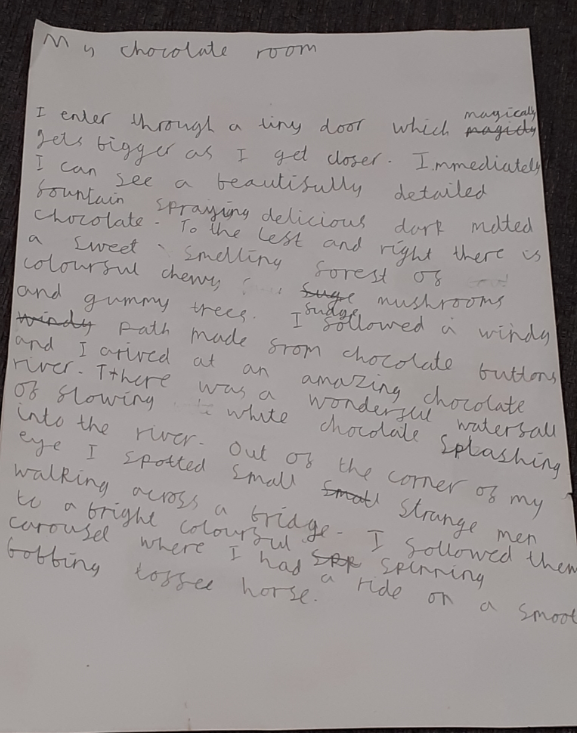 My chocolate room
I enter through a tiny door which magically
gets bigger as I get closer. Immediately
I can see a beautifully detailed
fountain spraying delicious dark melted
chocolate. To the left and right there is
a sweet smelling forest of
colourful chewy fudge mushrooms
and gummy trees. I followed a windy
path made from chocolate buttons
and I arived at an amazing chocolate
river. Tthere was a wonderful waterfall
of flowing white chocolate splashing
into the river. Out of the corner of my
eye I spotted small strange men
walking across a bridge. I followed them
to a bright colourful spinning
carousel where I had a ride on a smoot
bobbing toffee horse.